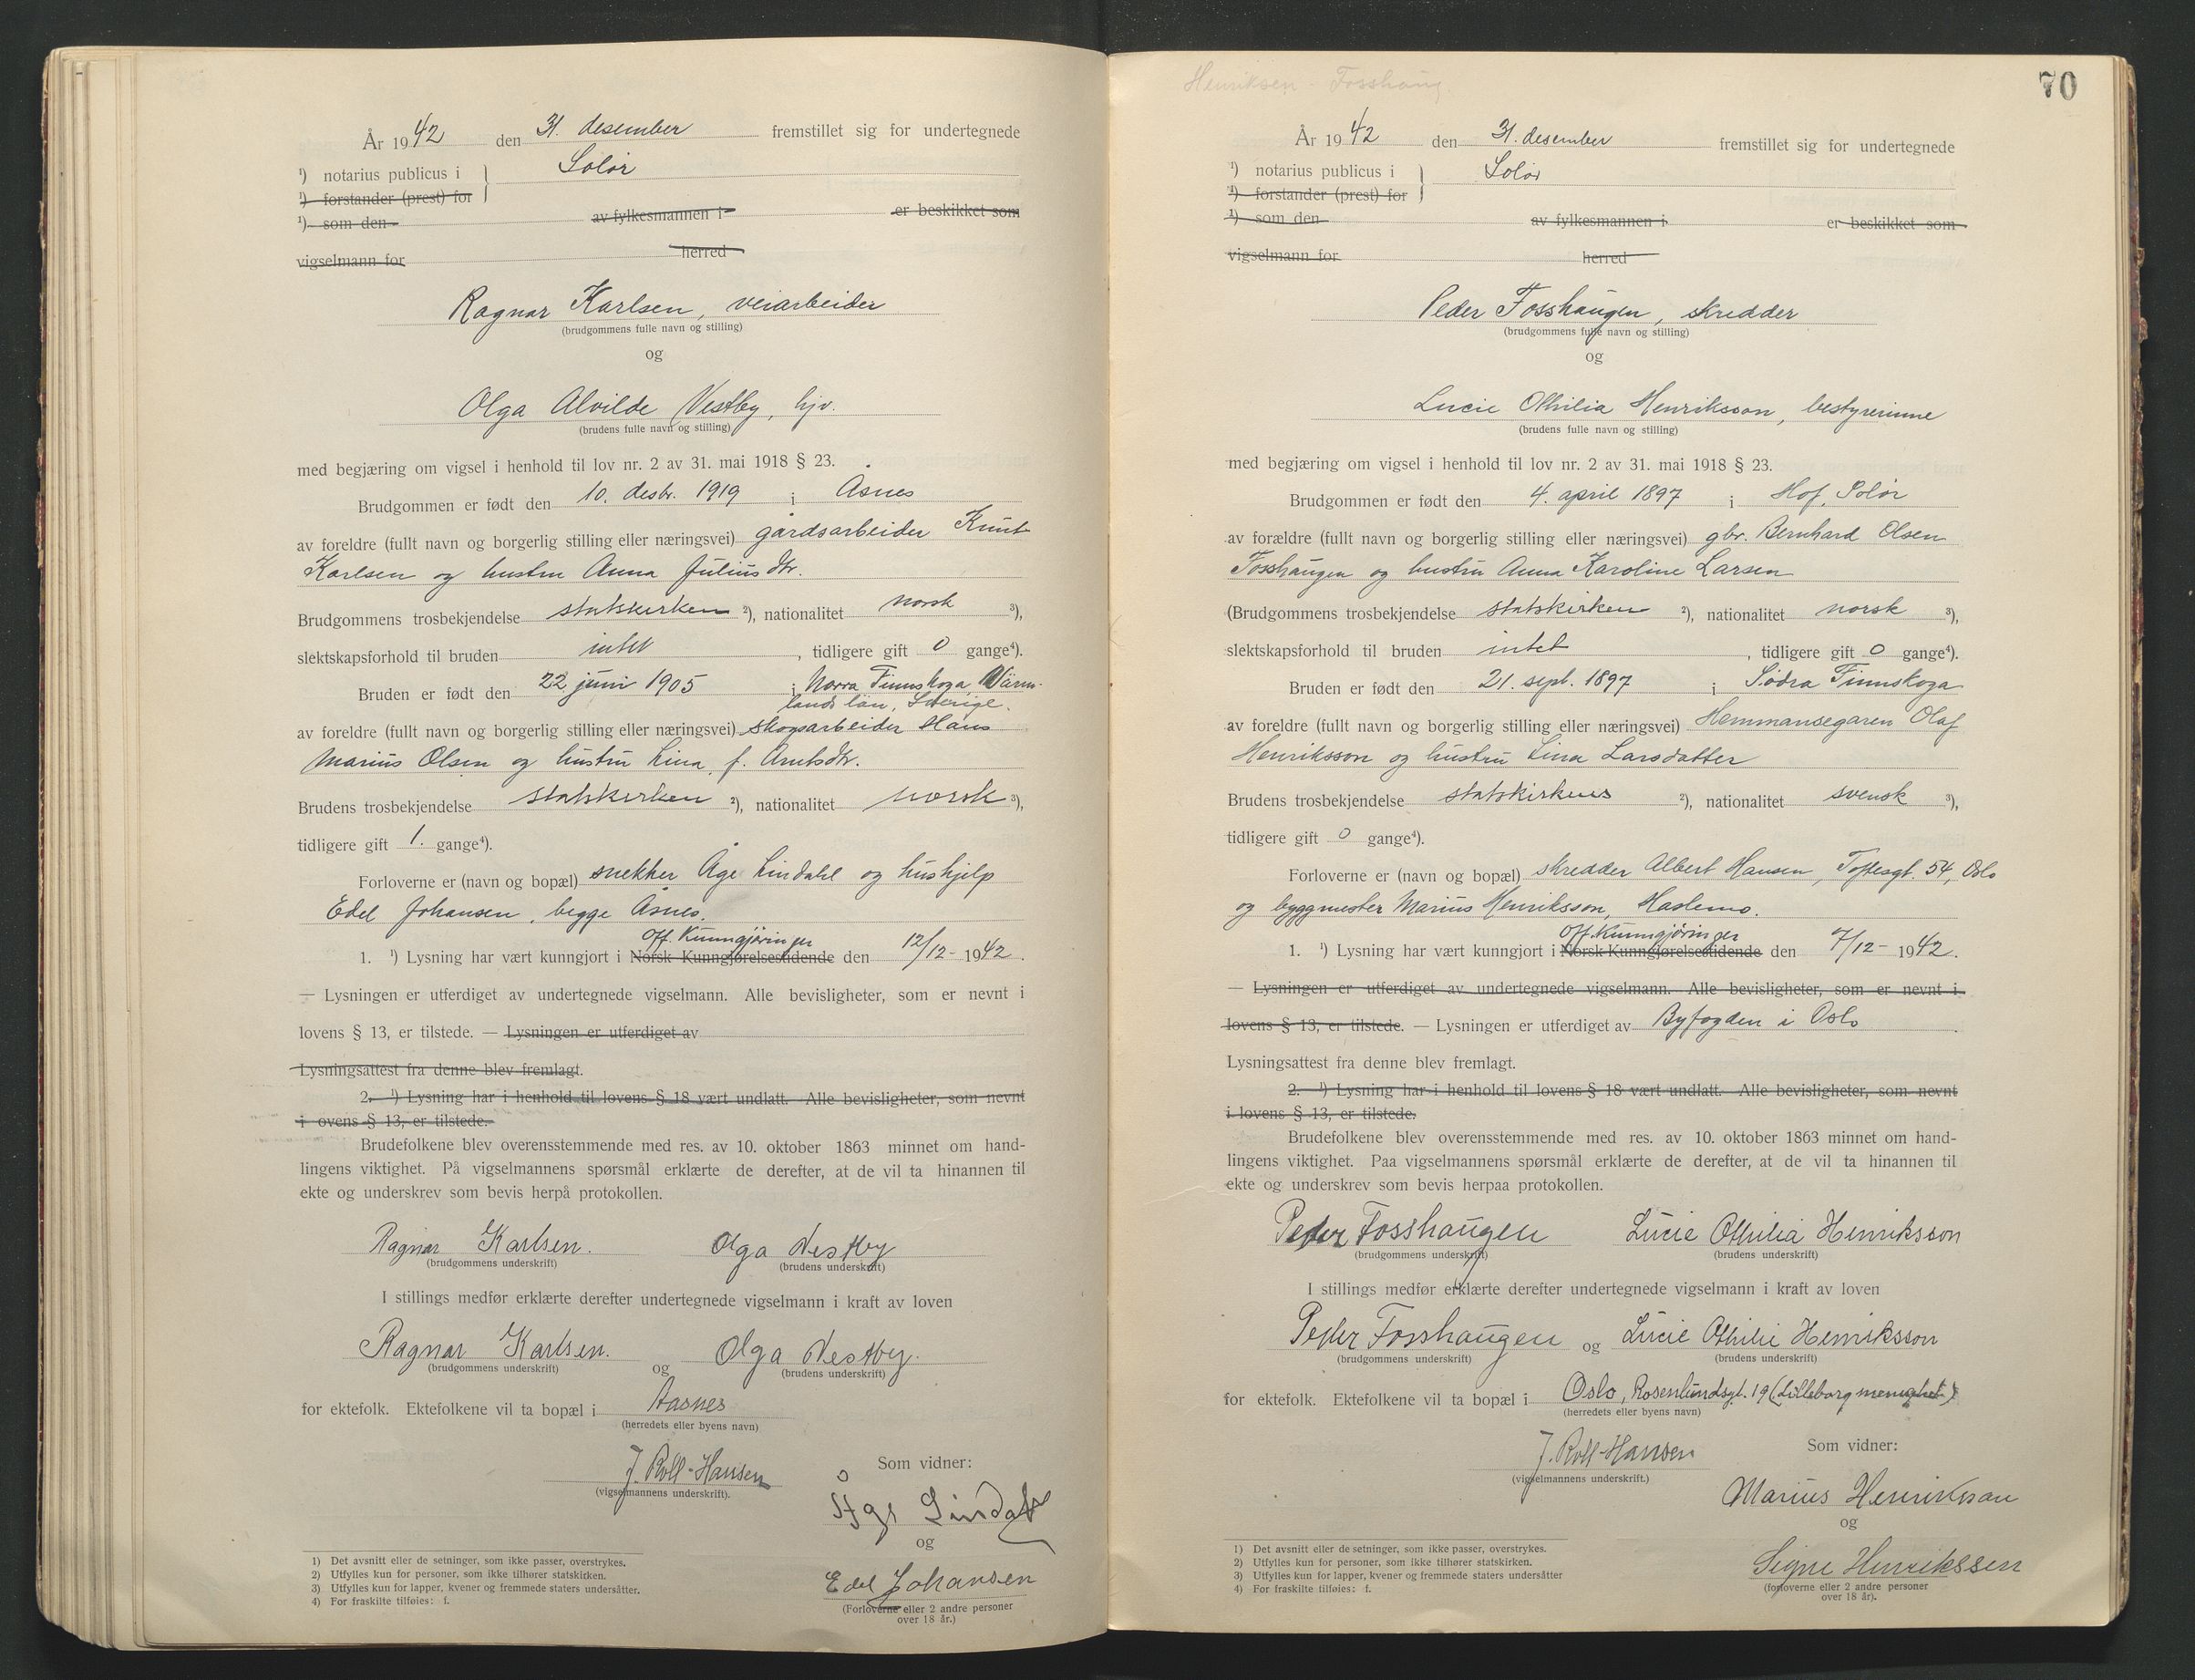 År 1942 den 31. desember fremstillet sig for undertegnede
¹) notarius publicus i } Solør
¹) forstander (prest) for
¹) som den av fylkesmannen i er beskikket som
vigselmann for herred
Ragnar Karlsen, veiarbeider
(brudgommens fulle navn og stilling)
og
Olga Alvilde Vestby, hjv.
(brudens fulle navn og stilling)
med begjæring om vigsel i henhold til lov nr. 2 av 31. mai 1918 § 23.
Brudgommen er født den 10. desbr. 1919 i Åsnes
av foreldre (fullt navn og borgerlig stilling eller næringsvei) gårdsarbeider Knut
Karlsen og hustru Anna Julius dtr.
Brudgommens trosbekjendelse statskirken ²), nationalitet norsk ³),
slektskapsforhold til bruden intet, tidligere gift 0 gange⁴).
Bruden er født den 22 juni 1905 i Norra Finnskoga, Värm-
lands län, Sverige.
av foreldre (fullt navn og borgerlig stilling eller næringsvei) skogsarbeider Hans
Marius Olsen og hustru Lina, f. Arntsdtr.
Brudens trosbekjendelse statskirken ²), nationalitet norsk ³),
tidligere gift 1. gange⁴).
Forloverne er (navn og bopæl) snekker Åge Lindahl og hushjelp
Edel Johansen, begge Åsnes.
Off. Kunngjøringer
1. ¹) Lysning har vært kunngjort i Norsk Kunngjørelsestidende den 12/12- 1942.
— Lysningen er utferdiget av undertegnede vigselmann. Alle bevisligheter, som er nevnt i
lovens § 13, er tilstede. — Lysningen er utferdiget av
Lysningsattest fra denne blev fremlagt.
2. ¹) Lysning har i henhold til lovens § 18 vært undlatt. Alle bevisligheter, som nevnt
i ovens § 13, er tilstede.
Brudefolkene blev overensstemmende med res. av 10. oktober 1863 minnet om hand-
lingens viktighet. På vigselmannens spørsmål erklærte de derefter, at de vil ta hinannen til
ekte og underskrev som bevis herpå protokollen.
Ragnar Karlsen. Olga Vestby
(brudgommens underskrift) (brudens underskrift)
I stillings medfør erklærte derefter undertegnede vigselmann i kraft av loven
Ragnar Karlsen. og Olga Vestby.
(brudgommens underskrift) (brudens underskrift)
for ektefolk. Ektefolkene vil ta bopæl i Aasnes
(herredets eller byens navn)
J. Roll-Hansen
(vigselmannens underskrift).
Som vidner:
Åge Lindahl
og
Edel Johansen
(Forloverne eller 2 andre personer
over 18 år.)
1) Det avsnitt eller de setninger, som ikke passer, overstrykes.
2) Utfylles kun for personer, som ikke tilhører statskirken.
3) Utfylles kun for lapper, kvener og fremmede staters undersåtter.
4) For fraskilte tilføies: f.
Henriksen - Fosshaug.
70
År 1942 den 31. desember fremstillet sig for undertegnede
¹) notarius publicus i } Solør
¹) forstander (prest) for
¹) som den av fylkesmannen i er beskikket som
vigselmann for herred
Peder Fosshaugen, skredder
(brudgommens fulle navn og stilling)
og
Lucie Othilia Henriksson, bestyrerinne
(brudens fulle navn og stilling)
med begjæring om vigsel i henhold til lov nr. 2 av 31. mai 1918 § 23.
Brudgommen er født den 4. april 1897 i Hof, Solør
av forældre (fullt navn og borgerlig stilling eller næringsvei) gbr. Bernhard Olsen
Fosshaugen og hustru Anna Karoline Larsen
(Brudgommens trosbekjendelse statskirken ²), nationalitet norsk ³),
slektskapsforhold til bruden intet, tidligere gift 0 gange⁴).
Bruden er født den 21. sept. 1897 i Södra Finnskoga
av foreldre (fullt navn og borgerlig stilling eller næringsvei) Hemmansegaren Olaf
Henriksson og hustru Lina Larsdatter
Brudens trosbekjendelse statskirkens ²), nationalitet svensk ³),
tidligere gift 0 gange⁴).
Forloverne er (navn og bopæl) skredder Albert Hansen, Toftesgt. 54, Oslo
og byggmester Marius Henriksson, Haslemo.
Off. Kunngjøringer
1. ¹) Lysning har vært kunngjort i Norsk Kunngjørelsestidende den 7/12- 1942.
— Lysningen er utferdiget av undertegnede vigselmann. Alle bevisligheter, som er nevnt i
lovens § 13, er tilstede. — Lysningen er utferdiget av Byfogden i Oslo
Lysningsattest fra denne blev fremlagt.
2. ¹) Lysning har i henhold til lovens § 18 vært undlatt. Alle bevisligheter, som nevnt
i lovens § 13, er tilstede.
Brudefolkene blev overensstemmende med res. av 10. oktober 1863 minnet om hand-
lingens viktighet. Paa vigselmannens spørsmål erklærte de derefter, at de vil ta hinannen til
ekte og underskrev som bevis herpaa protokollen.
Peder Fosshaugen Lucie Othilia Henriksson
(brudgommens underskrift) (brudens underskrift)
I stillings medfør erklærte derefter undertegnede vigselmann i kraft av loven
Peder Fosshaugen og Lucie Othilie Henriksson
(brudgommens underskrift) (brudens underskrift)
for ektefolk. Ektefolkene vil ta bopæl i Oslo, Rosenlundsgt. 19 (Lilleborg menighet)
(herredets eller byens navn)
J. Roll-Hansen
(vigselmannens underskrift.)
Som vidner:
Marius Henriksson
og
Signe Henrikssen
(forloverne eller 2 andre personer
over 18 år).
1) Det avsnitt eller de setninger, som ikke passer, overstrykes.
2) Utfylles kun for personer, som ikke tilhører statskirken.
3) Utfylles kun for lapper, kvener og fremmede staters undersåtter
4) For fraskilte tilføies: f.